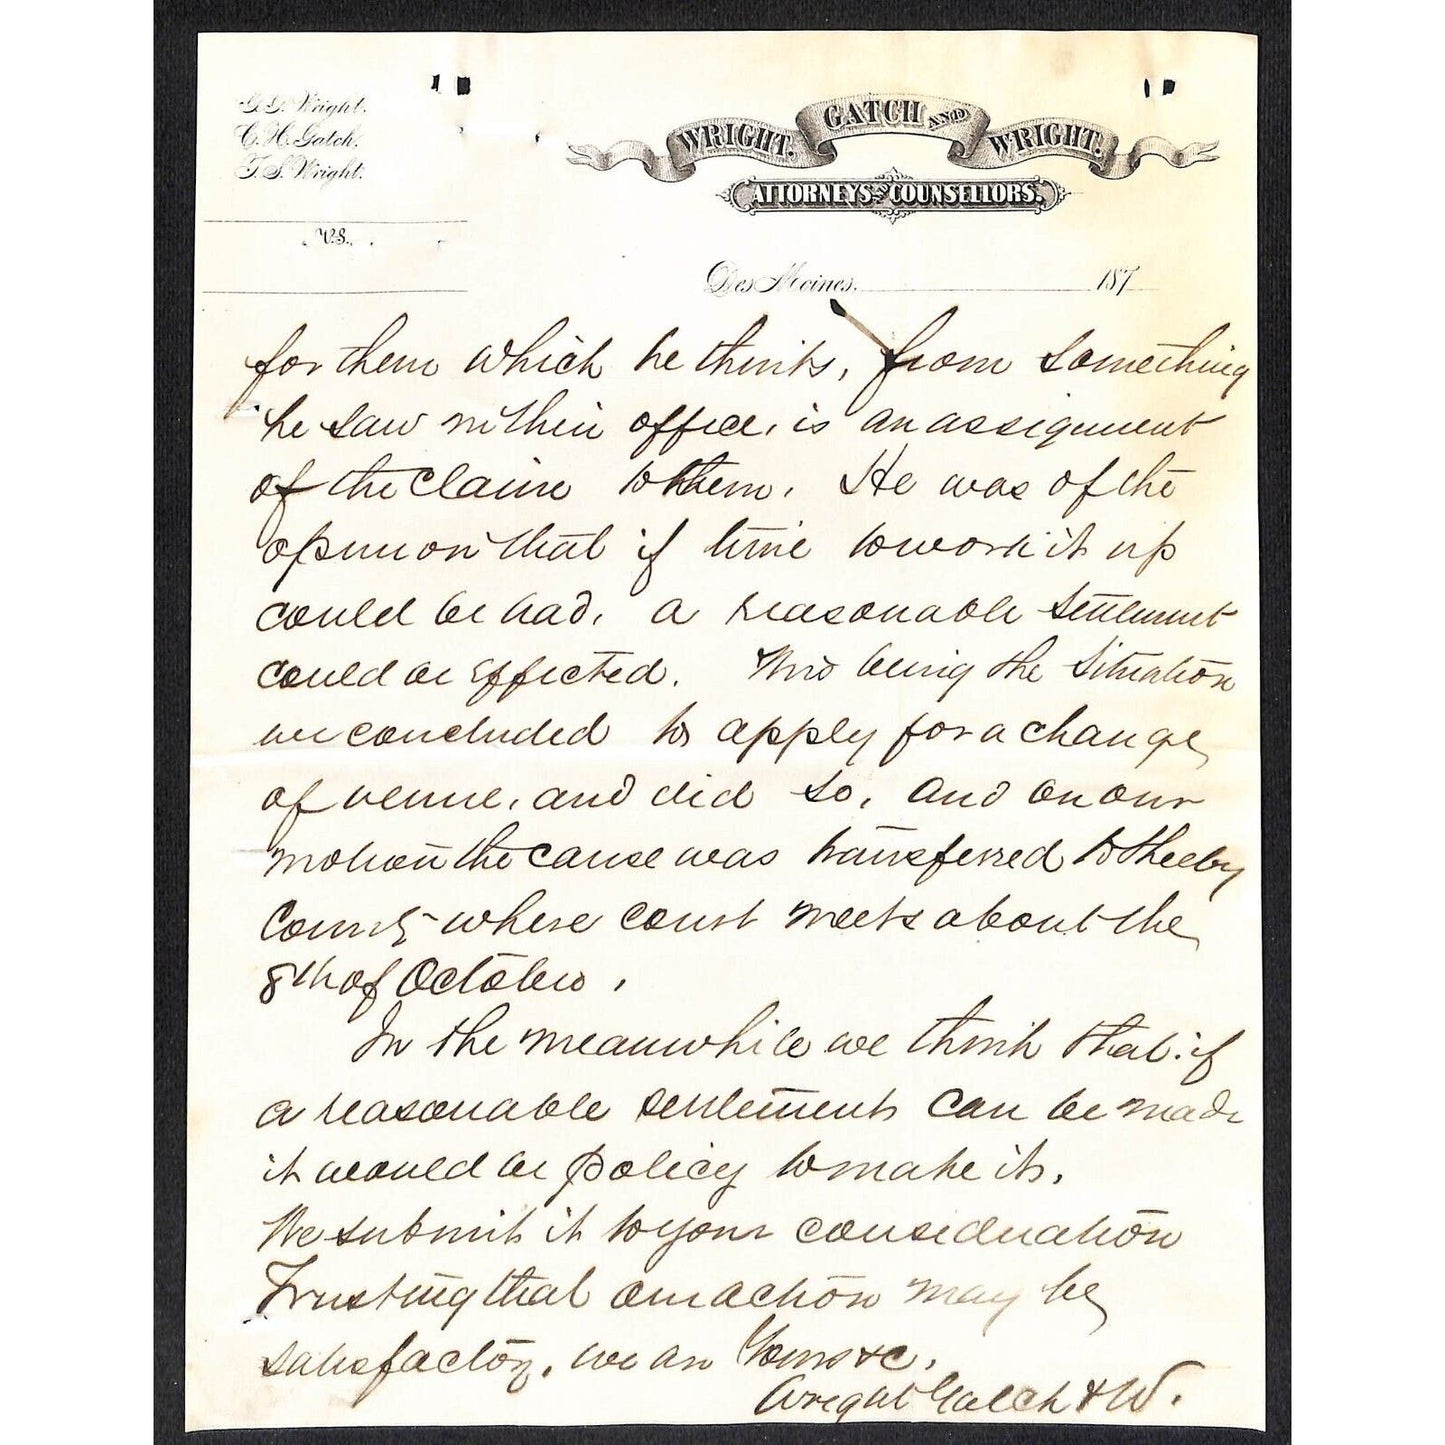 G. G. Wright.
C. H. Gatch.
T. S. Wright.
WRIGHT, GATCH AND WRIGHT.
ATTORNEYS AND COUNSELLORS.
vs.
Des Moines, 187
for them which he thinks, from something
he saw within office, is an assignment
of the claim to them. He was of the
opinion that if time to work it up
could be had, a reasonable settlement
could be effected. This being the situation
we concluded to apply for a change
of venue, and did so, and on our
motion the cause was transferred to Shelby
County where court meets about the
8th of October.
In the meanwhile we think that if
a reasonable settlement can be made
it would be policy to make it.
We submit it to your consideration
Trusting that our action may be
satisfactory, we are Yours &c.
Wright Gatch & W.